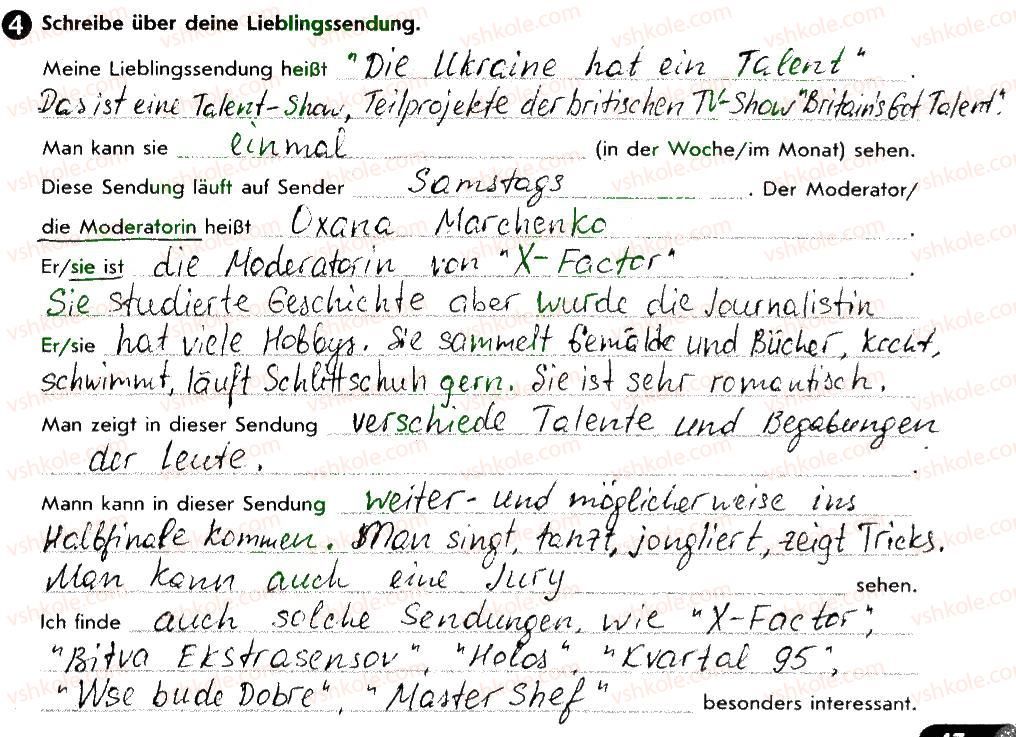 4 Schreibe über deine Lieblingssendung.
Meine Lieblingssendung heißt "Die Ukraine hat ein Talent".
Das ist eine Talent-Show, Teilprojekte der britischen TV-Show "Britain's Got Talent".
Man kann sie einmal (in der Woche/im Monat) sehen.
Diese Sendung läuft auf Sender Samstags. Der Moderator/
die Moderatorin heißt Oxana Marchenko.
Er/sie ist die Moderatorin von "X-Factor".
Sie studierte Geschichte aber wurde die Journalistin
Er/sie hat viele Hobbys. Sie sammelt Gemälde und Bücher, kocht,
schwimmt, läuft Schlittschuh gern. Sie ist sehr romantisch.
Man zeigt in dieser Sendung verschiede Talente und Begabungen
der Leute.
Mann kann in dieser Sendung weiter- und möglicherweise ins
Halbfinale kommen. Man singt, tanzt, jongliert, zeigt Tricks.
Man kann auch eine Jury sehen.
Ich finde auch solche Sendungen, wie "X-Factor",
"Bitva Ekstrasensov", "Holos", "Kvartal 95",
"Wse bude Dobre", "Master Shef" besonders interessant.
47
vshkole.com